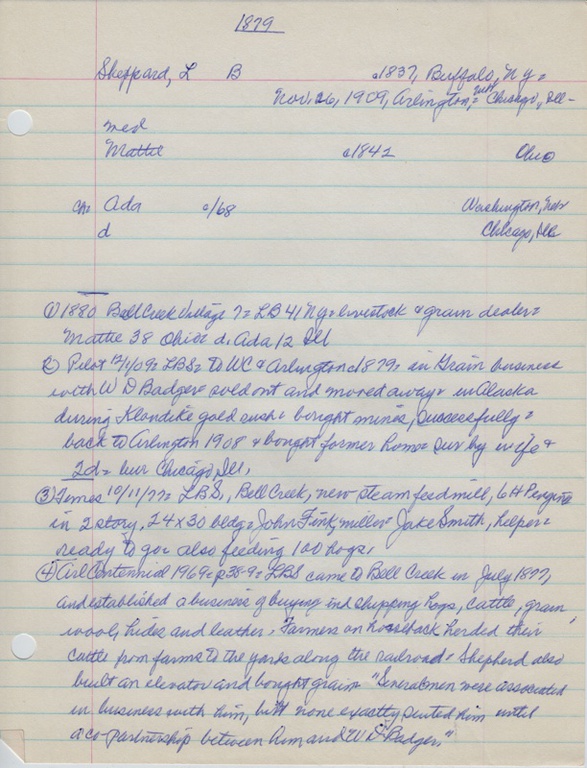 1879
Sheppard, L B c1837, Buffalo, Ny=
Nov. 26, 1909, Arlington,= Chicago, Ill-
med
Mattie c1842 Ohio
ch: Ada c/68 Washington, Nebr
d Chicago, Ills
① 1880 Bell Creek Village 7= LB 41 Ny= livestock & grain dealer=
Mattie 38 Ohio= d. Ada 12 Ill
② Pilot 12/1/09= LBS= to WC & Arlington c1879= in Grain business
with W D Badger= sold out and moved away= in Alaska
during Klondike gold rush= bought mines, successfully=
back to Arlington 1908 & bought former home= sur by wife &
1d= bur Chicago, Ill,
③ Times 10/11/77= LBS, Bell Creek, new steam feed mill, 6H
in 2 story, 24x30 bldg= John Fink, miller= Jake Smith, helper=
ready to go= also feeding 100 hogs.
④ Arl Centennial 1969= p38-9= LBS came to Bell Creek in July 1877,
and established a business of buying and shipping hogs, cattle, grain
wool, hides and leather. Farmers on horseback herded their
cattle from farms to the yards along the railroad= Shepherd also
built an elevator and bought grain= "Several men were associated
in business with him, but none exactly suited him until
a co-partnership between him and W D Badger"